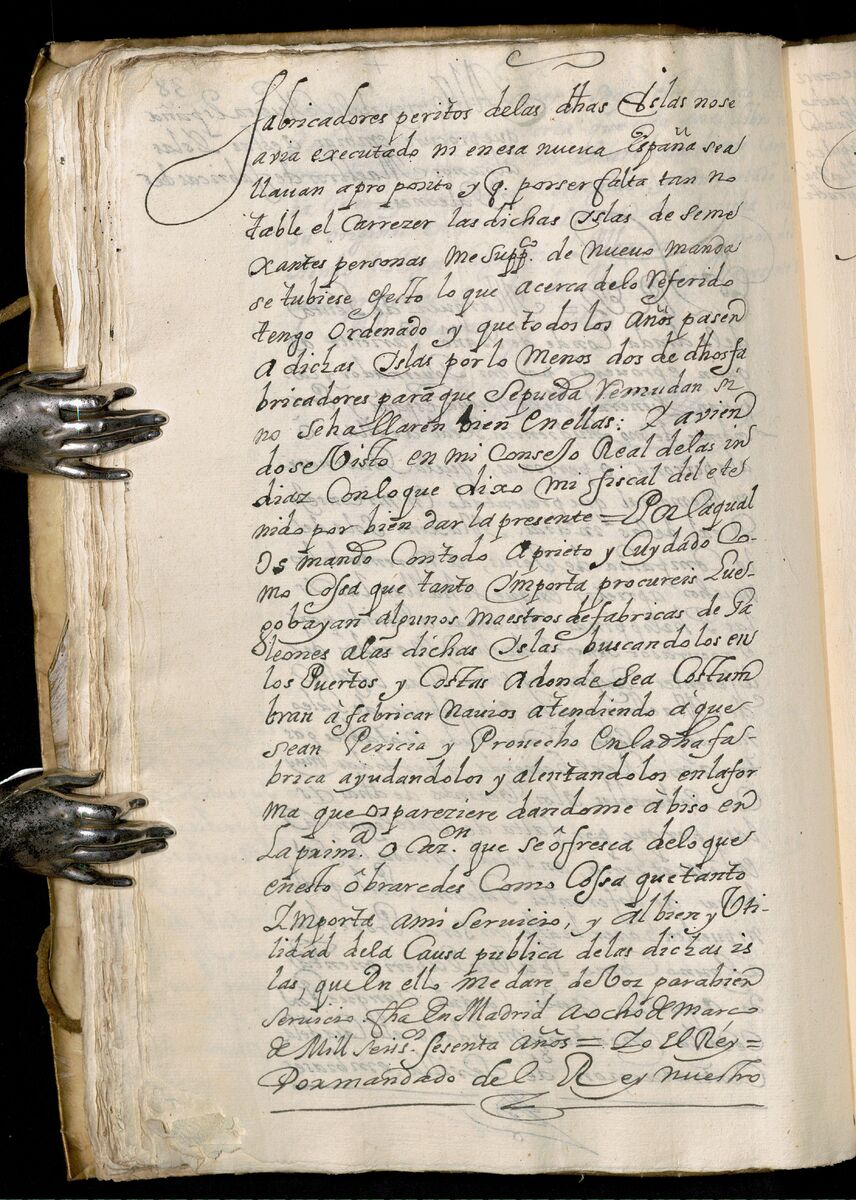 fabricadores peritos de las dhas Yslas no se
avia executado ni en esa nueva España sea
llauan a pro posito y q. por ser falta tan no
table el Carrezer las dichas Yslas de seme
xantes personas me supp.co de nuevo manda
se tubiese efecto lo que acerca de lo Referido
tengo ordenado y que todos los años pasen
a dichas Yslas por lo menos dos de dhos fa
bricadores para que se pueda Remudan si
no se hallaren bien en ellas: Y avien
dose Visto en mi Consejo Real de las in
diaz con lo que dixo mi fiscal del e te
nido por bien dar la presente = Por la qual
os mando con todo aprieto y Cuydado Co-
mo Cossa que tanto Ymporta procureis Lue-
go bayan algunos maestros de fabricas de Ga
leones a las dichas Yslas buscandolos en
los Puertos y Costas adonde sea Costum
bran à fabricar navios atendiendo à que
sean Pericia y Provecho en la dha fa-
brica ayudandolos y alentandolos en la for
ma que os pareziere dandome à biso en
La prim.a ocaz.on que se ôfresca de lo que
en esto ôbraredes Como Cossa que tanto
Ymporta a mi servicio, y al bien y Uti-
lidad de la Causa publica de las dichas is
las, que en ello me dare de Voz por a bien
servicio. fha En Madrid a ocho de março
de Mill seis.os sesenta años = Yo El Rey =
Por mandado del Rey nuestro